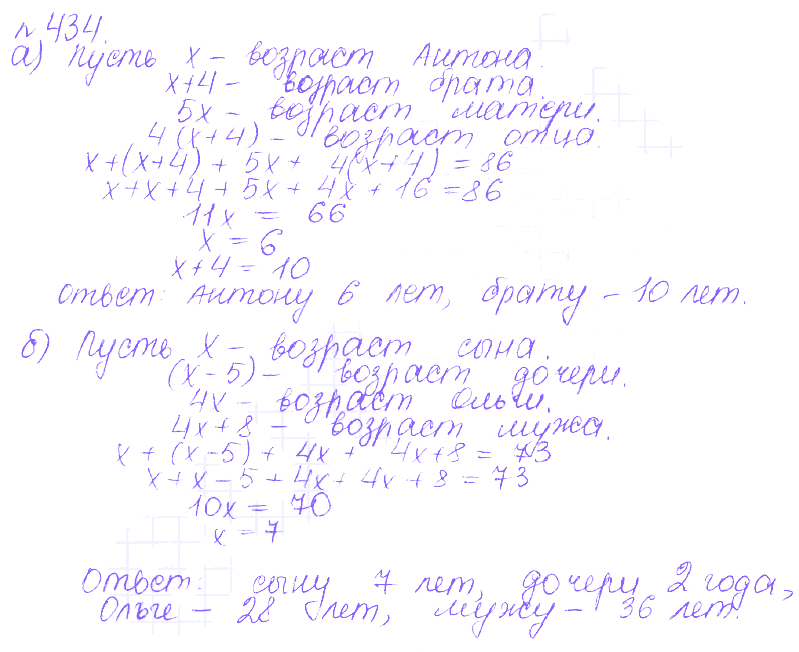 № 434.
а) Пусть x – возраст Антона.
x+4 – возраст брата.
5x – возраст матери.
4(x+4) – возраст отца.
x+(x+4) + 5x + 4(x+4) = 86
x+x+4+5x+4x+16=86
11x = 66
x = 6
x+4 = 10
Ответ: Антону 6 лет, брату – 10 лет.
б) Пусть x – возраст сына.
(x-5) – возраст дочери.
4x – возраст Ольги.
4x+8 – возраст мужа.
x + (x-5) + 4x + 4x+8 = 73
x+x-5+4x+4x+8=73
10x = 70
x = 7
Ответ: сыну 7 лет, дочери 2 года,
Ольге – 28 лет, мужу – 36 лет.